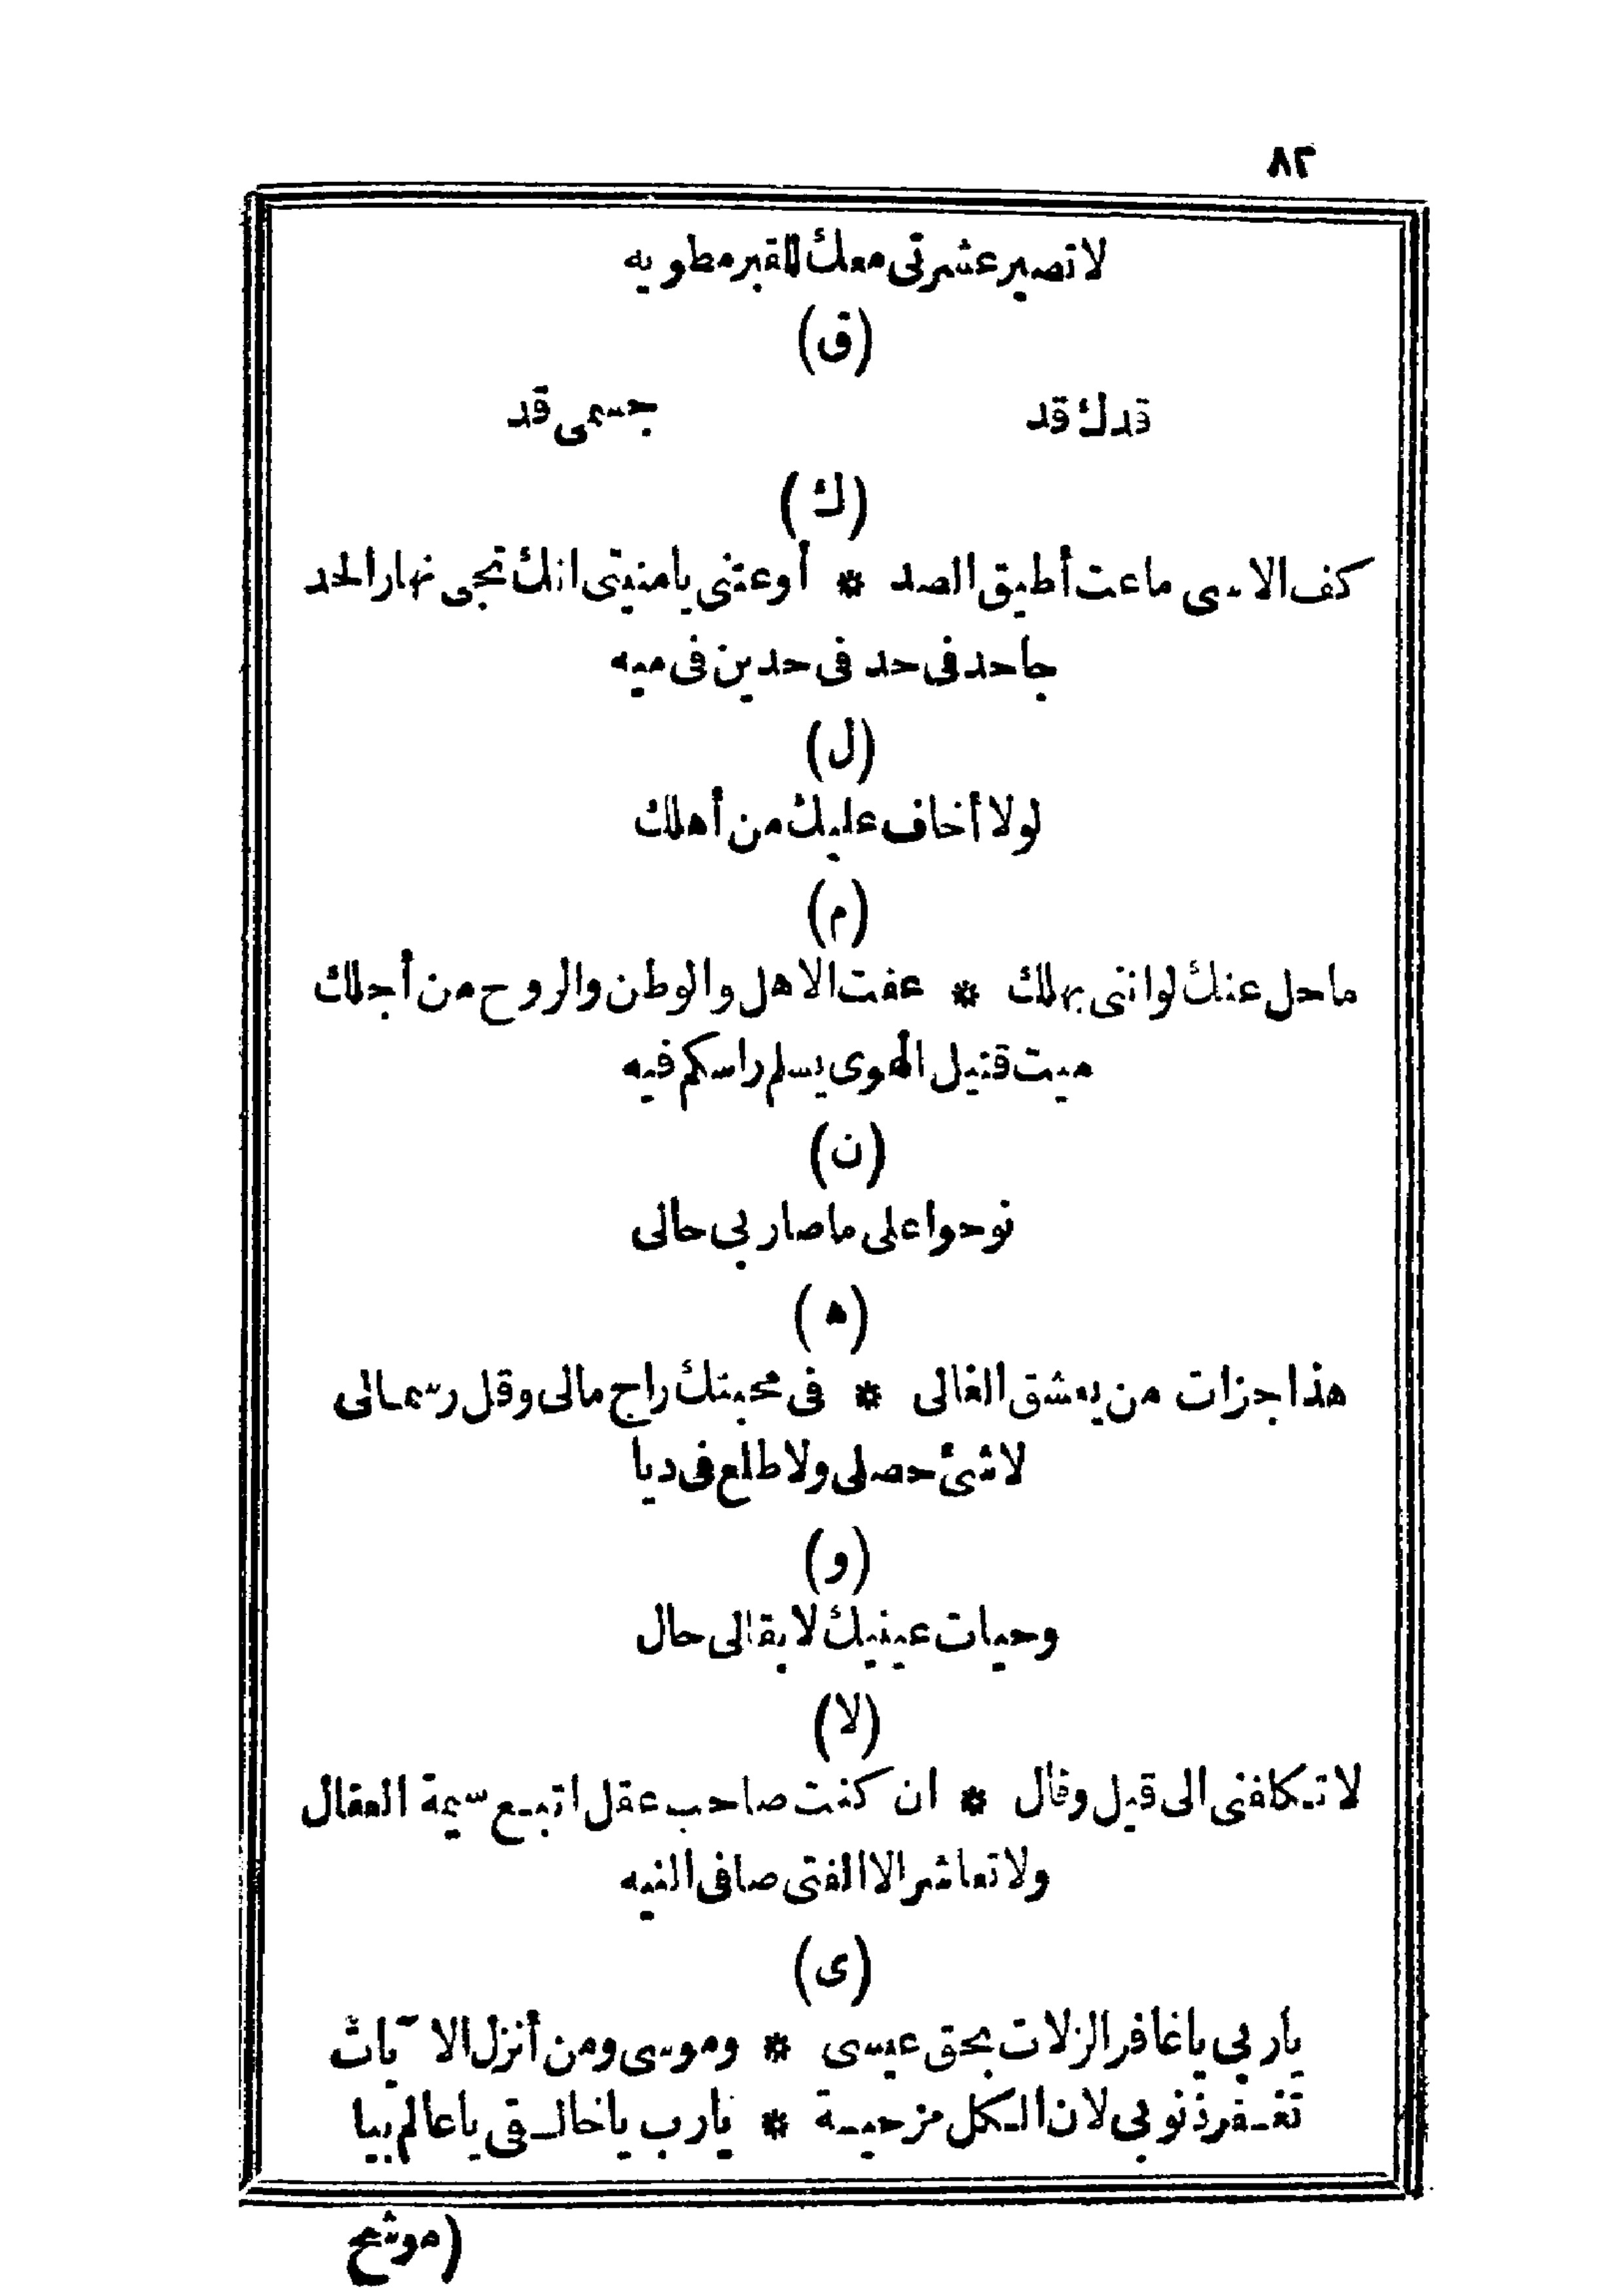 ٨٢
لا تصير عشرتى معك للقبر مطويه
(ق)
قدك قد جسمى قد
(ك)
كف الاسى ماعت أطيق الصد * أوعتنى يا منيتى انك تجى نهار الحد
جاحد فى حد فى حدين فى ميه
(ل)
لولا أخاف عليك من أهلك
(م)
ماحل عنك لو اننى بهلك * عفت الاهل والوطن والروح من أجلك
ميت قتيل الهوى يسلم راسكم فيه
(ن)
نوحوا على ماصار بى حالى
(ه)
هذا جزات من يعشق الغالى * فى محبتك راح مالى وقل رسمالى
لاشئ حصلى ولا طلع فى ديا
(و)
وحيات عينيك لا بقالى حال
(لا)
لا تكافنى الى قيل وقال * ان كنت صاحب عقل اتبع سيمة العقال
ولا تعاشر الا الفتى صافى النيه
(ى)
ياربى ياغافر الزلات بحق عيسى * وموسى ومن أنزل الآيات
تغفر ذنوبى لان الكل مزحية * يارب ياخالقى ياعالم بيا
(موشح